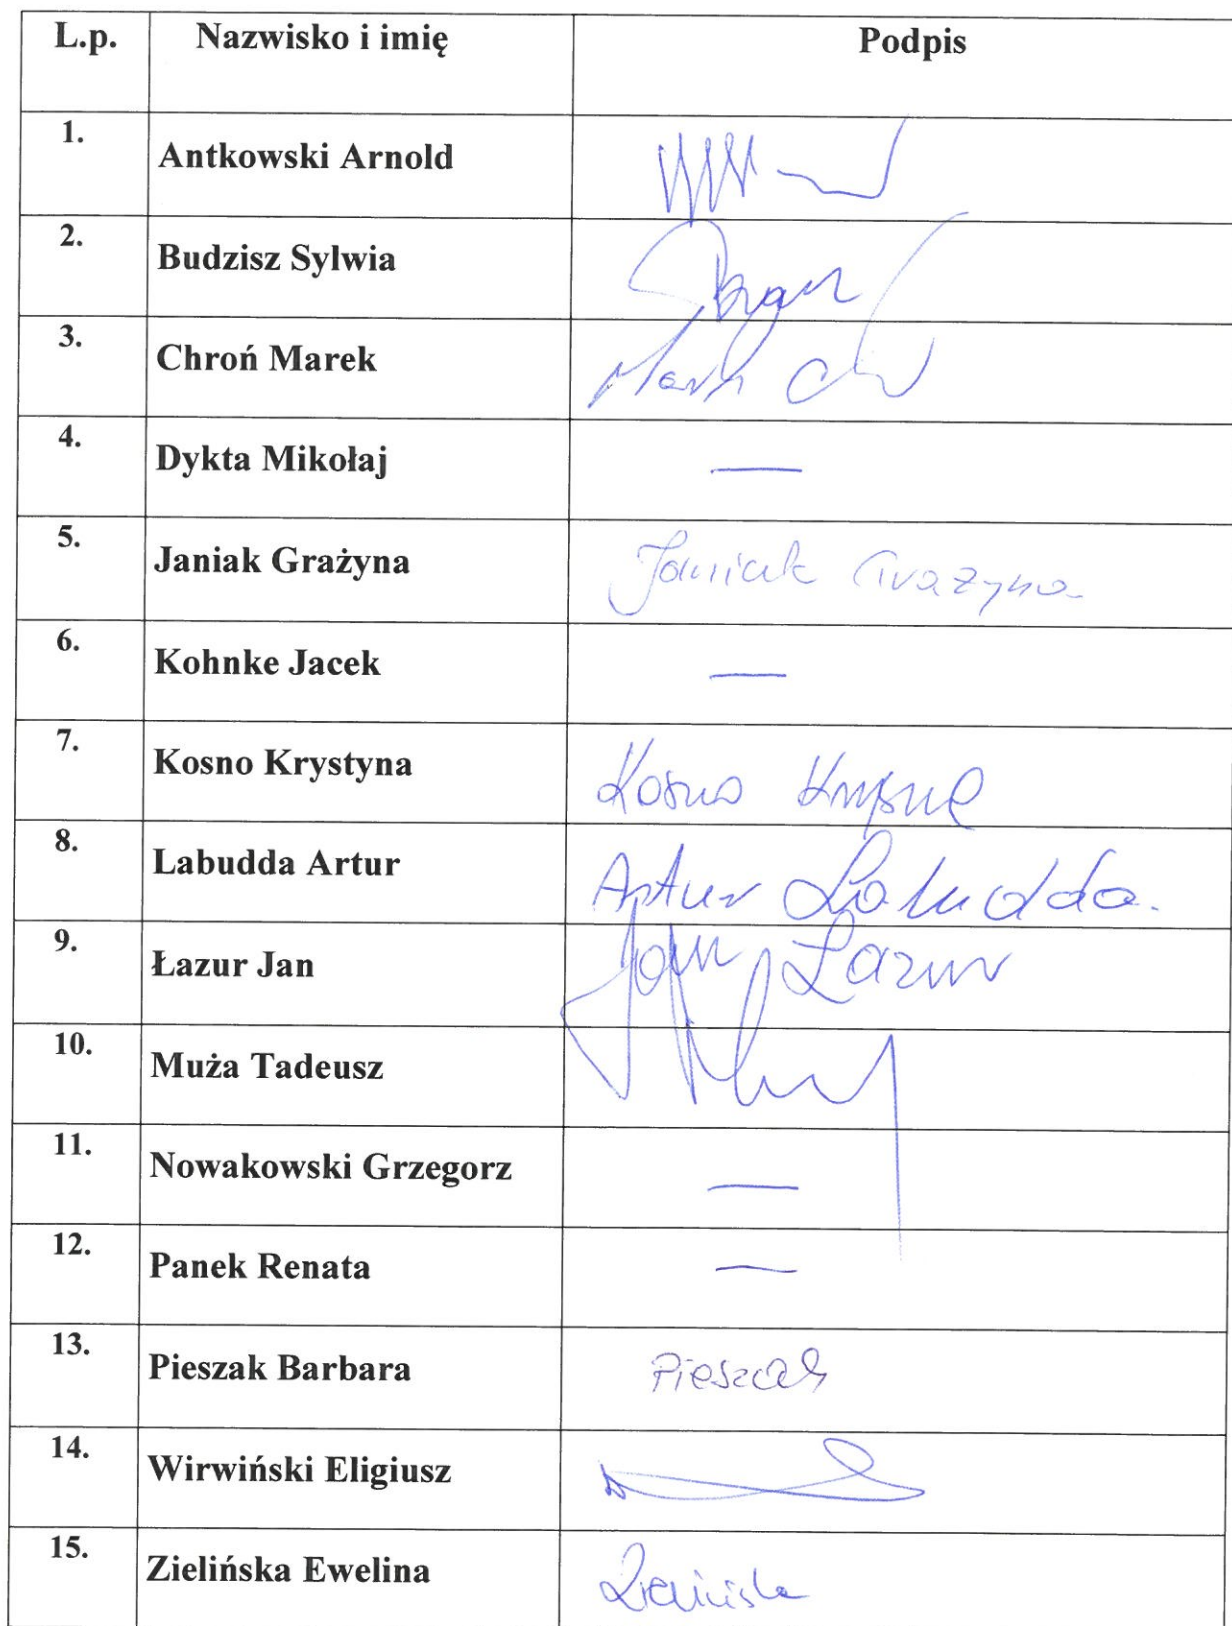 L.p. Nazwisko i imię Podpis
1. Antkowski Arnold
2. Budzisz Sylwia
3. Chroń Marek Marek
4. Dykta Mikołaj —
5. Janiak Grażyna Janiak Grażyna
6. Kohnke Jacek —
7. Kosno Krystyna Kosno
8. Labudda Artur Artur Labudda.
9. Łazur Jan Jan Łazur
10. Muża Tadeusz
11. Nowakowski Grzegorz —
12. Panek Renata —
13. Pieszak Barbara Pieszak
14. Wirwiński Eligiusz
15. Zielińska Ewelina Zielińska